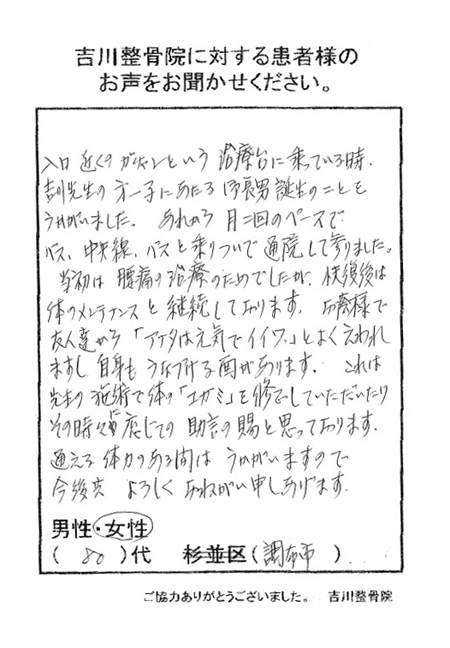 吉川整骨院に対する患者様の
お声をお聞かせください。
入口近くのガチャンという治療台に乗っている時、
吉川先生の第一子にあたる御長男誕生のことを
うかがいました。あれから月二回のペースで
バス、中央線、バスと乗りついで通院して参りました。
当初は腰痛の治療のためでしたが、快復後は
体のメンテナンスと継続しております。お蔭様で
友人達から「アナタは元気でイイワ。」とよく云われ
ますし自身もうなづける面があります。これは
先生の施術で体の「ユガミ」を修正していただいたり
その時々に応じての助言の賜と思っております。
通える体力のある間はうかがいますので
今後共よろしくおねがい申しあげます。
男性・女性
(80)代 杉並区(調布市)
ご協力ありがとうございました。 吉川整骨院